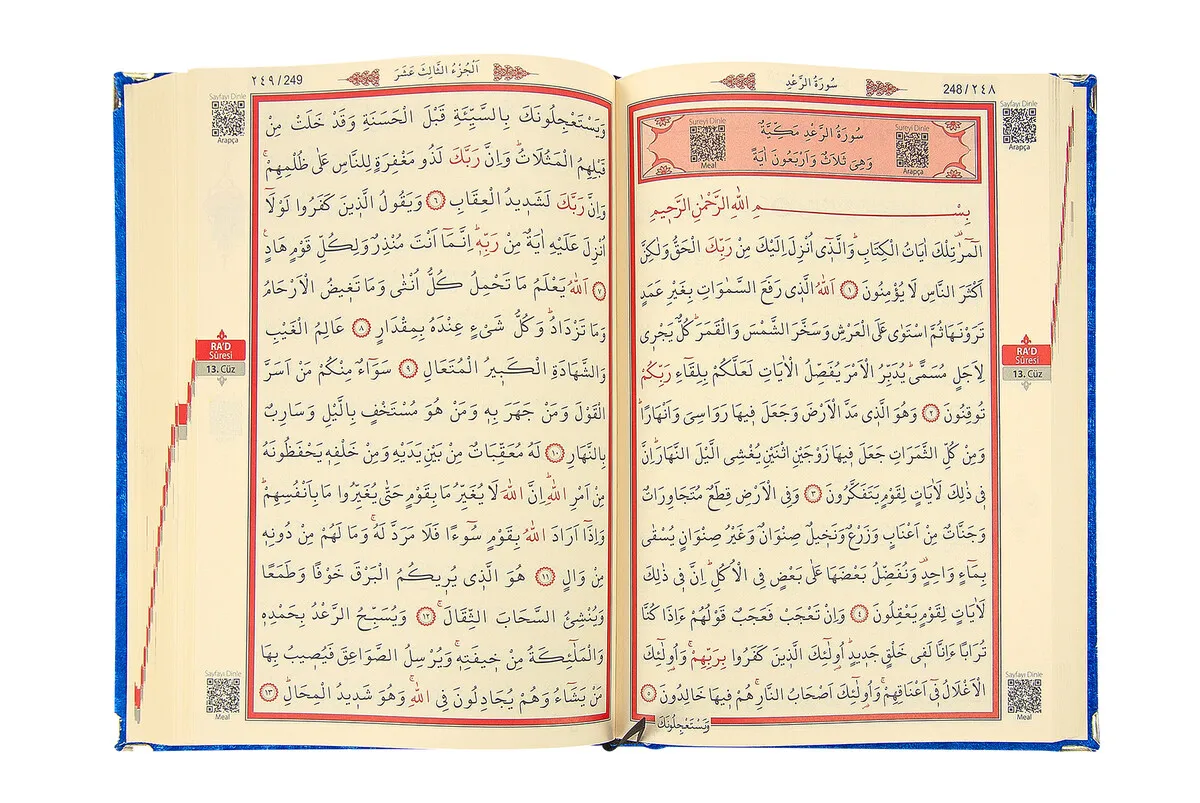 248/٢٤٨
سُورَةُ الرَّعْدِ
Sayfayı Dinle
Arapça
Sureyi Dinle
Meal
سُورَةُ الرَّعْدِ مَكِّيَّةٌ
وَهِىَ ثَلَاثٌ وَاَرْبَعُونَ اٰيَةً
Sureyi Dinle
Arapça
بِسْمِ اللّٰهِ الرَّحْمٰنِ الرَّحِيمِ
الٓمٓرٰ تِلْكَ اٰيَاتُ الْكِتَابِ وَالَّذ۪ٓى اُنْزِلَ اِلَيْكَ مِنْ رَبِّكَ الْحَقُّ وَلٰكِنَّ
اَكْثَرَ النَّاسِ لَا يُؤْمِنُونَ ١ اَللّٰهُ الَّذ۪ى رَفَعَ السَّمٰوَاتِ بِغَيْرِ عَمَدٍ
تَرَوْنَهَا ثُمَّ اسْتَوٰى عَلَى الْعَرْشِ وَسَخَّرَ الشَّمْسَ وَالْقَمَرَ كُلٌّ يَجْر۪ى
لِاَجَلٍ مُسَمًّى يُدَبِّرُ الْاَمْرَ يُفَصِّلُ الْاٰيَاتِ لَعَلَّكُمْ بِلِقَٓاءِ رَبِّكُمْ
تُوقِنُونَ ٢ وَهُوَ الَّذ۪ى مَدَّ الْاَرْضَ وَجَعَلَ ف۪يهَا رَوَاسِىَ وَاَنْهَارًا
وَمِنْ كُلِّ الثَّمَرَاتِ جَعَلَ ف۪يهَا زَوْجَيْنِ اثْنَيْنِ يُغْشِى الَّيْلَ النَّهَارَ اِنَّ
ف۪ى ذٰلِكَ لَاٰيَاتٍ لِقَوْمٍ يَتَفَكَّرُونَ ٣ وَفِى الْاَرْضِ قِطَعٌ مُتَجَاوِرَاتٌ
وَجَنَّاتٌ مِنْ اَعْنَابٍ وَزَرْعٌ وَنَخ۪يلٌ صِنْوَانٌ وَغَيْرُ صِنْوَانٍ يُسْقٰى
بِمَٓاءٍ وَاحِدٍ وَنُفَضِّلُ بَعْضَهَا عَلٰى بَعْضٍ فِى الْاُكُلِ اِنَّ ف۪ى ذٰلِكَ
لَاٰيَاتٍ لِقَوْمٍ يَعْقِلُونَ ٤ وَاِنْ تَعْجَبْ فَعَجَبٌ قَوْلُهُمْ ءَاِذَا كُنَّا
تُرَابًا ءَاِنَّا لَف۪ى خَلْقٍ جَد۪يدٍ اُو۬لٰٓئِكَ الَّذ۪ينَ كَفَرُوا بِرَبِّهِمْ وَاُو۬لٰٓئِكَ
الْاَغْلَالُ ف۪ٓى اَعْنَاقِهِمْ وَاُو۬لٰٓئِكَ اَصْحَابُ النَّارِ هُمْ ف۪يهَا خَالِدُونَ ٥
وَيَسْتَعْجِلُونَكَ
RA'D
Sûresi
13. Cüz
Sayfayı Dinle
Meal
٢٤٩/249
اَلْجُزْءُ الثَّالِثَ عَشَرَ
Sayfayı Dinle
Arapça
وَيَسْتَعْجِلُونَكَ بِالسَّيِّئَةِ قَبْلَ الْحَسَنَةِ وَقَدْ خَلَتْ مِنْ
قَبْلِهِمُ الْمَثُلَاتُ وَاِنَّ رَبَّكَ لَذُو مَغْفِرَةٍ لِلنَّاسِ عَلٰى ظُلْمِهِمْ
وَاِنَّ رَبَّكَ لَشَد۪يدُ الْعِقَابِ ٦ وَيَقُولُ الَّذ۪ينَ كَفَرُوا لَوْلَٓا
اُنْزِلَ عَلَيْهِ اٰيَةٌ مِنْ رَبِّه۪ اِنَّمَٓا اَنْتَ مُنْذِرٌ وَلِكُلِّ قَوْمٍ هَادٍ
٧ اَللّٰهُ يَعْلَمُ مَا تَحْمِلُ كُلُّ اُنْثٰى وَمَا تَغ۪يضُ الْاَرْحَامُ
وَمَا تَزْدَادُ وَكُلُّ شَىْءٍ عِنْدَهُ بِمِقْدَارٍ ٨ عَالِمُ الْغَيْبِ
وَالشَّهَادَةِ الْكَب۪يرُ الْمُتَعَالِ ٩ سَوَٓاءٌ مِنْكُمْ مَنْ اَسَرَّ
الْقَوْلَ وَمَنْ جَهَرَ بِه۪ وَمَنْ هُوَ مُسْتَخْفٍ بِالَّيْلِ وَسَارِبٌ
بِالنَّهَارِ ١٠ لَهُ مُعَقِّبَاتٌ مِنْ بَيْنِ يَدَيْهِ وَمِنْ خَلْفِه۪ يَحْفَظُونَهُ
مِنْ اَمْرِ اللّٰهِ اِنَّ اللّٰهَ لَا يُغَيِّرُ مَا بِقَوْمٍ حَتّٰى يُغَيِّرُوا مَا بِاَنْفُسِهِمْ
وَاِذَٓا اَرَادَ اللّٰهُ بِقَوْمٍ سُٓوءًا فَلَا مَرَدَّ لَهُ وَمَا لَهُمْ مِنْ دُونِه۪
مِنْ وَالٍ ١١ هُوَ الَّذ۪ى يُر۪يكُمُ الْبَرْقَ خَوْفًا وَطَمَعًا
وَيُنْشِئُ السَّحَابَ الثِّقَالَ ١٢ وَيُسَبِّحُ الرَّعْدُ بِحَمْدِه۪
وَالْمَلٰٓئِكَةُ مِنْ خ۪يفَتِه۪ وَيُرْسِلُ الصَّوَاعِقَ فَيُص۪يبُ بِهَا
مَنْ يَشَٓاءُ وَهُمْ يُجَادِلُونَ فِى اللّٰهِ وَهُوَ شَد۪يدُ الْمِحَالِ ١٣
RA'D
Sûresi
13. Cüz
Sayfayı Dinle
Meal